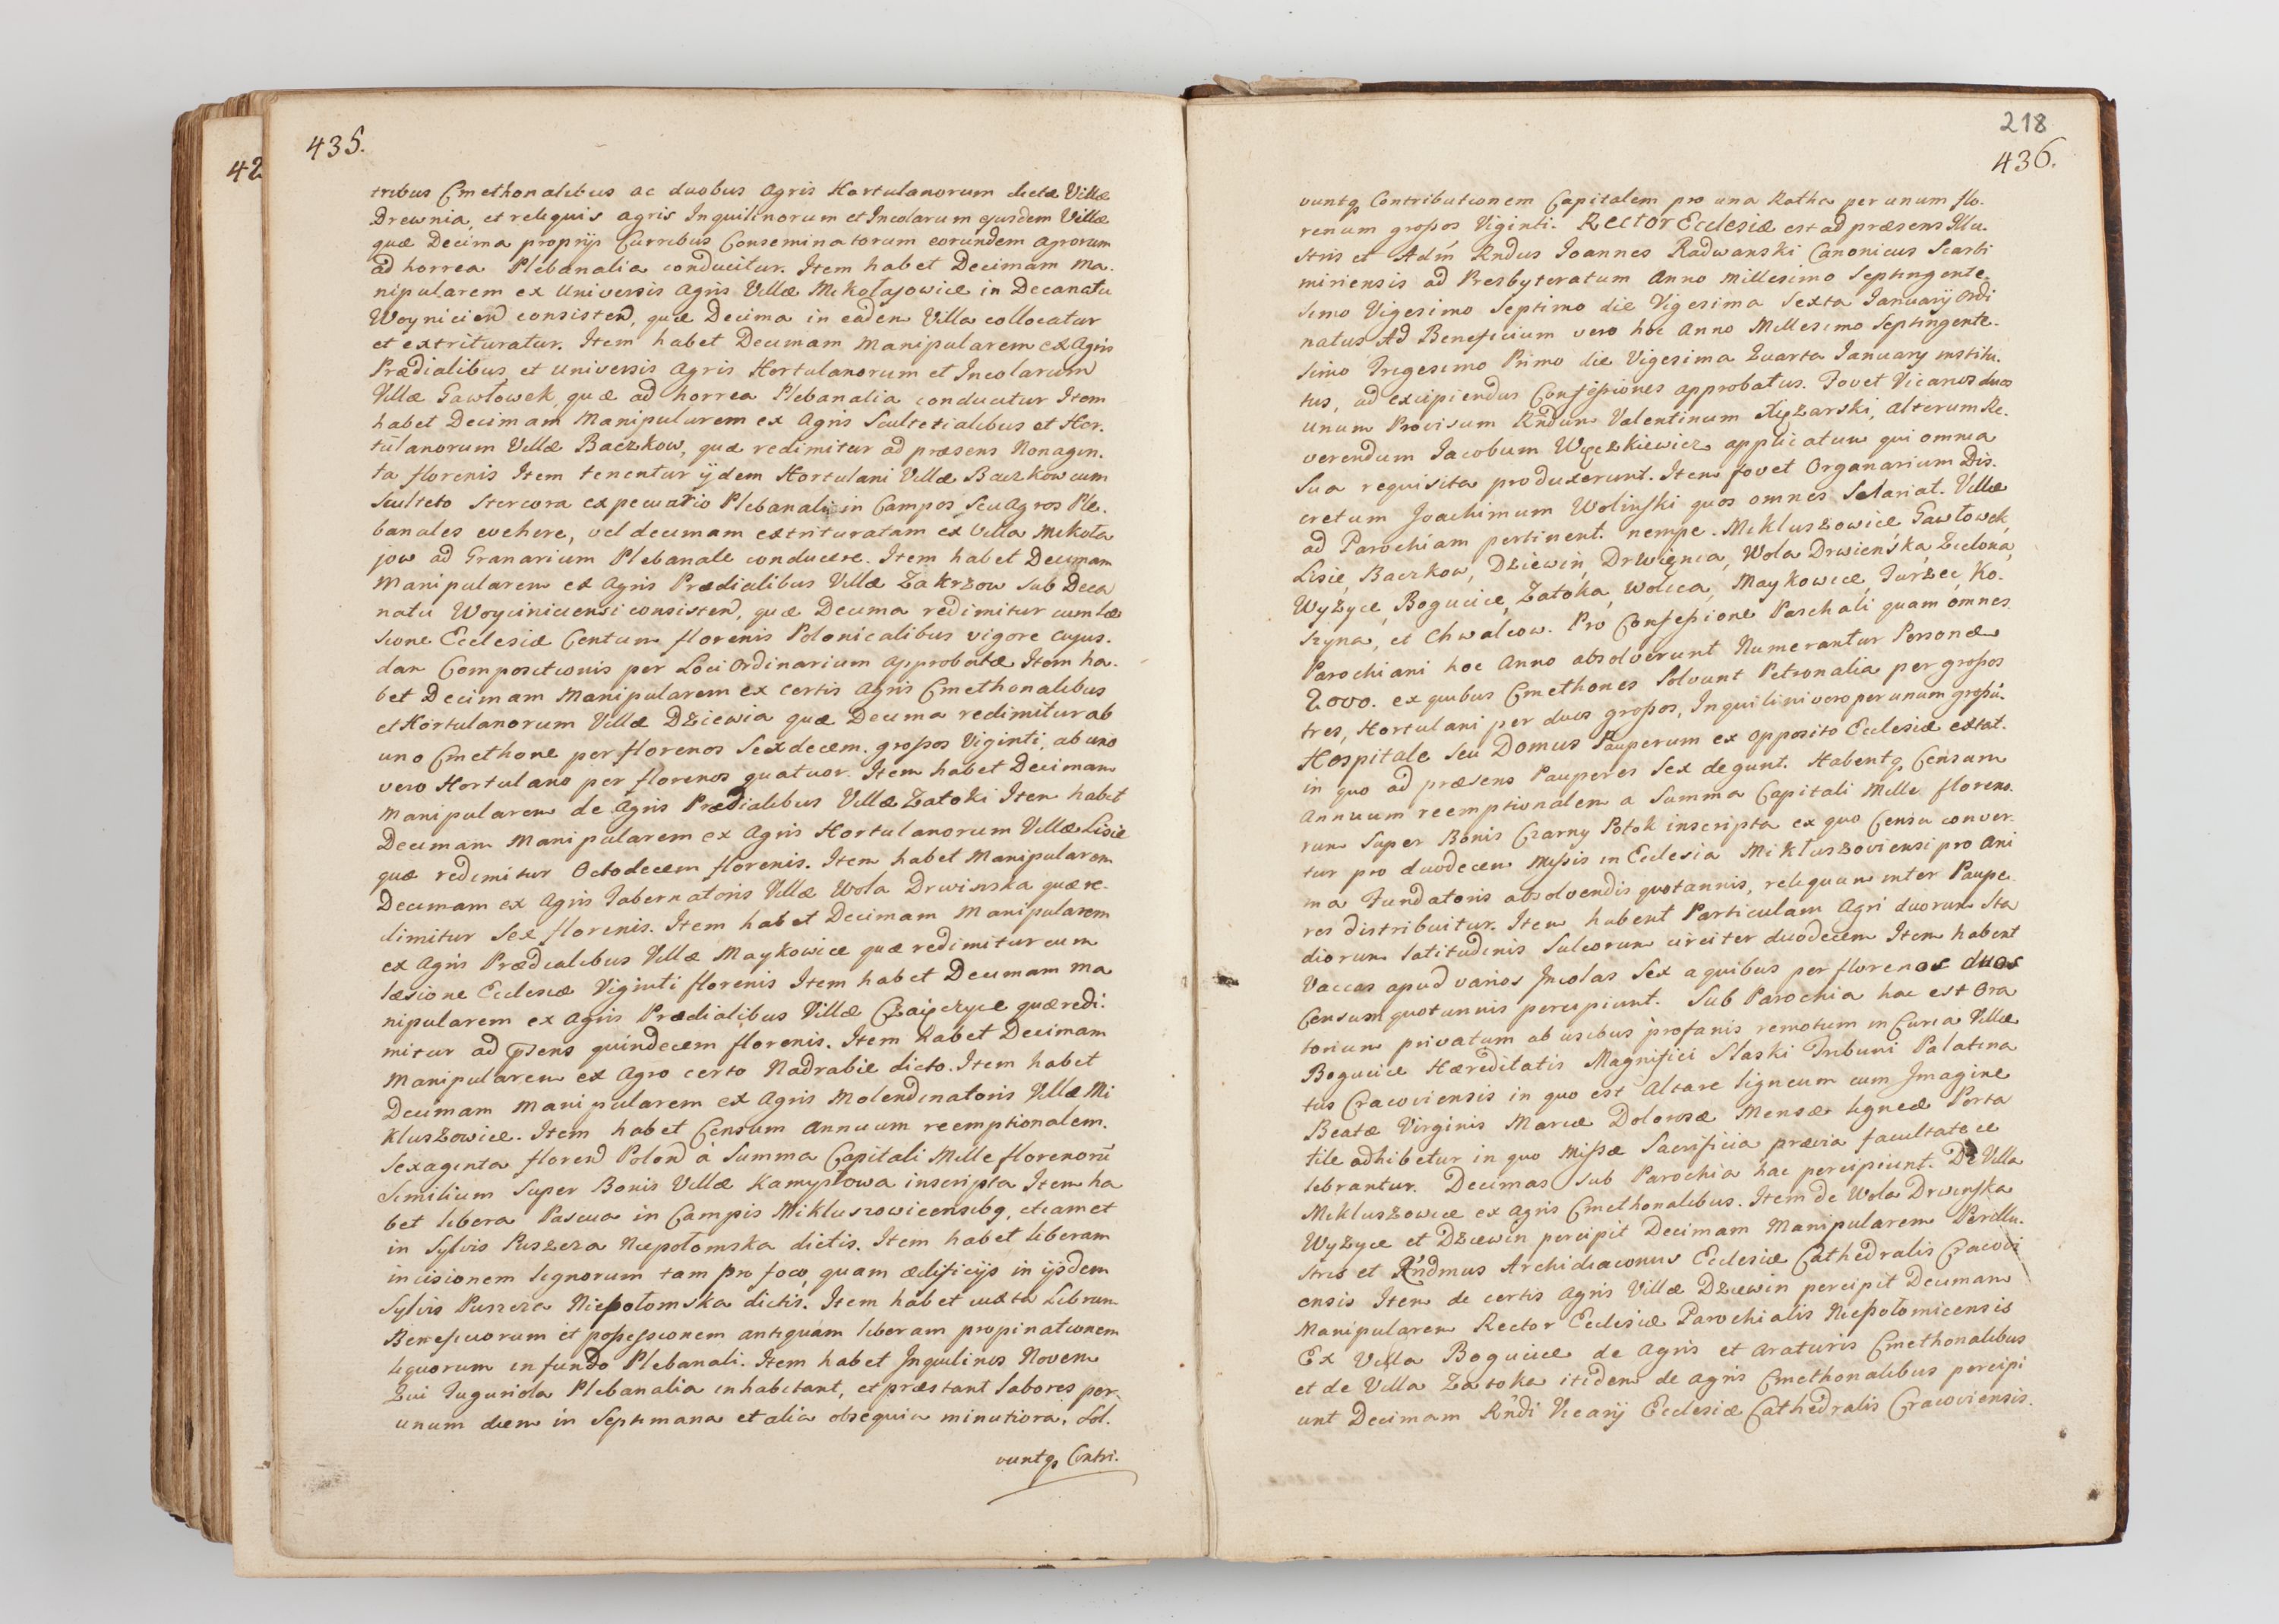 435.
42
tribus Cmethonalibus ac duobus agris Hortulanorum dictæ Villæ
Drewnia, et reliquis agris Inquilinorum et Incolarum ejusdem Villæ
quæ Decima proprijs Curribus Conseminatorum eorundem agrorum
ad horrea Plebanalia conducitur. Item habet Decimam Ma-
nipularem ex Universis Agris Villæ Mikołajowice in Decanatu
Woynicień consisteñ, quæ Decima in eadem Villa collocatur
et extrituratur. Item habet Decimam Manipularem ex Agris
Prædialibus et Universis Agris Hortulanorum et Incolarum
Villæ Gawłowek, quæ ad horrea Plebanalia conducitur Item
habet Decimam Manipularem ex Agris Scultetialibus et Hor-
tulanorum Villæ Baczkow, quæ redimitur ad præsens Nonagin-
ta florenis Item tenentur ijdem Hortulani Villæ Baczkow cum
Sculteto Stercora ex pecuario Plebanali in Campos seu Agros Ple-
banales evehere, vel decimam extrituratam ex Villa Mikoła
jow ad Granarium Plebanale conducere. Item habet Decimam
Manipularem ex Agris Prædialibus Villæ Zakrzow sub Deca
natu Woyciniciensi consisteñ, quæ Decima redimitur cum læ
sione Ecclesiæ Centum florenis Polonicalibus vigore cujus-
dam Compositionis per Loci Ordinarium approbatæ Item ha-
bet Decimam Manipularem ex certis Agris Cmethonalibus
et Hortulanorum Villæ Dziewia quæ Decima redimitur ab
uno Cmethone per florenos Sexdecem. grossos Viginti, ab uno
vero Hortulano per florenos quatuor. Item habet Decimam
Manipularem de Agris Prædialibus Villæ Zatoki Item habet
Decimam Manipularem ex Agris Hortulanorum Villæ Lisie
quæ redimitur Octodecem florenis. Item habet Manipularem
Decimam ex Agris Tabernatoris Villæ Wola Drwinska quæ re-
dimitur Sex florenis. Item habet Decimam Manipularem
ex Agris Prædialibus Villæ Maykowice quæ redimitur cum
læsione Ecclesiæ Viginti florenis Item habet Decimam Ma
nipularem ex Agris Prædialibus Villæ Czaięczyce quæ redi-
mitur ad p̃sens quindecem florenis. Item habet Decimam
Manipularem ex Agro certo Nadrabie dicto. Item habet
Decimam Manipularem ex Agris Molendinatoris Villæ Mi
kluszowice. Item habet Censum Annuum reemptionalem.
Sexaginta floreñ Poloñ à Summa Capitali Mille florenorũ
Similium Super Bonis Villæ Kamyszowa inscripta Item ha
bet libera Pascua in Campis Mikluszowicensibq, etiam et
in Sylvis Puszcza Niepołomska dictis. Item habet liberam
incisionem lignorum tam pro foco, quam ædificijs in ijsdem
Sylvis Puszcza Niepołomska dictis. Item habet iuxta Librum
Beneficiorum et possessionem antiquam liberam propinationem
liquorum in fundo Plebanali. Item habet Inquilinos Novem
Qui Tuguriola Plebanalia inhabitant, et præstant labores per
unum diem in Septimana et alia obsequia minutiora, Sol-
vuntq, Contri-
218
436.
vuntq, Contributionem Capitalem pro una Ratha per unum flo-
renum grossos Viginti. Rector Ecclesiæ est ad præsens Illu-
stris et Adm̃ Rñdus Joannes Radwanski Canonicus Scarbi
miriensis ad Presbyteratum Anno Millesimo Septingente-
simo Vigesimo Septimo die Vigesima Sexta Januarij Ordi
natus Ad Beneficium vero hoc Anno Millesimo Septingente-
simo Trigesimo Primo die Vigesima Quarta Januarij institu-
tus, ad excipiendas Confessiones approbatus. Fovet Vicarios duos
Unum Provisum Rñdum Valentinum Xiężarski, alterum Re-
verendum Jacobum Węczkiewicz applicatum qui omnia
Sua requisita produxerunt. Item fovet Organarium Dis-
cretum Joachimum Wolinski quos omnes Salariat. Villæ
ad Parochiam pertinent. nempe. Mikluszowice Gawłowek,
Lisie, Baczkow, Dziewin, Drwięnia, Wola Drwieńska, Zielona,
Wyżyce, Bogucice, Zatoka, Wolica, Maykowice, Turzec, Ko-
szyna, et Chwalcow. Pro Confessione Paschali quam omnes
Parochiani hoc Anno absolverunt Numerantur Personæ
2000. ex quibus Cmethones Solvunt Petronalia per grossos
tres, Hortulani per duos grossos, Inquilini vero per unum grossũ.
Hospitale seu Domus Pauperum ex opposito Ecclesiæ extat.
in quo ad præsens Pauperes Sex degunt. Habentq, Censum
Annuum reemptionalem a Summa Capitali Mille floreno-
rum Super Bonis Czarny Potok inscripta ex quo Censu conver-
tur pro duodecem Missis in Ecclesia Mikluszoviensi pro Ani
ma Fundatoris absolvendis quotannis, reliquum inter Paupe-
res distribuitur. Item habent Particulam Agri duorum Sta
diorum latitudinis Sulcorum circiter duodecem Item habent
Vaccas apud varios Incolas Sex a quibus per florenos duos
Censum quotannis percipiunt. Sub Parochia hac est Ora
torium privatum ab usibus profanis remotum in Curia Villæ
Bogucice Hæreditatis Magnifici Slaski Tribuni Palatina
tus Cracoviensis in quo est Altare ligneum cum Imagine
Beatæ Virginis Mariæ Dolorosæ Mensæ ligneæ Porta
tile adhibetur in quo Missæ Sacrificia prævia facultate ce
lebrantur. Decimas sub Parochia hac percipiunt. De Villa
Mikluszowice ex Agris Cmethonalibus. Item de Wola Drwinska
Wyżyce et Dziewin percipit Decimam Manipularem Perillu-
stris et Rñdmus Archidiaconus Ecclesiæ Cathedralis Cracovi
ensis Item de certis Agris Villæ Dziewin percipit Decimam
Manipularem Rector Ecclesiæ Parochialis Niepołomicensis
Ex Villa Bogucice de Agris et Araturis Cmethonalibus
et de Villa Zatoka itidem de Agris Cmethonalibus percipi
unt Decimam Rñdi Vicarij Ecclesiæ Cathedralis Cracoviensis.